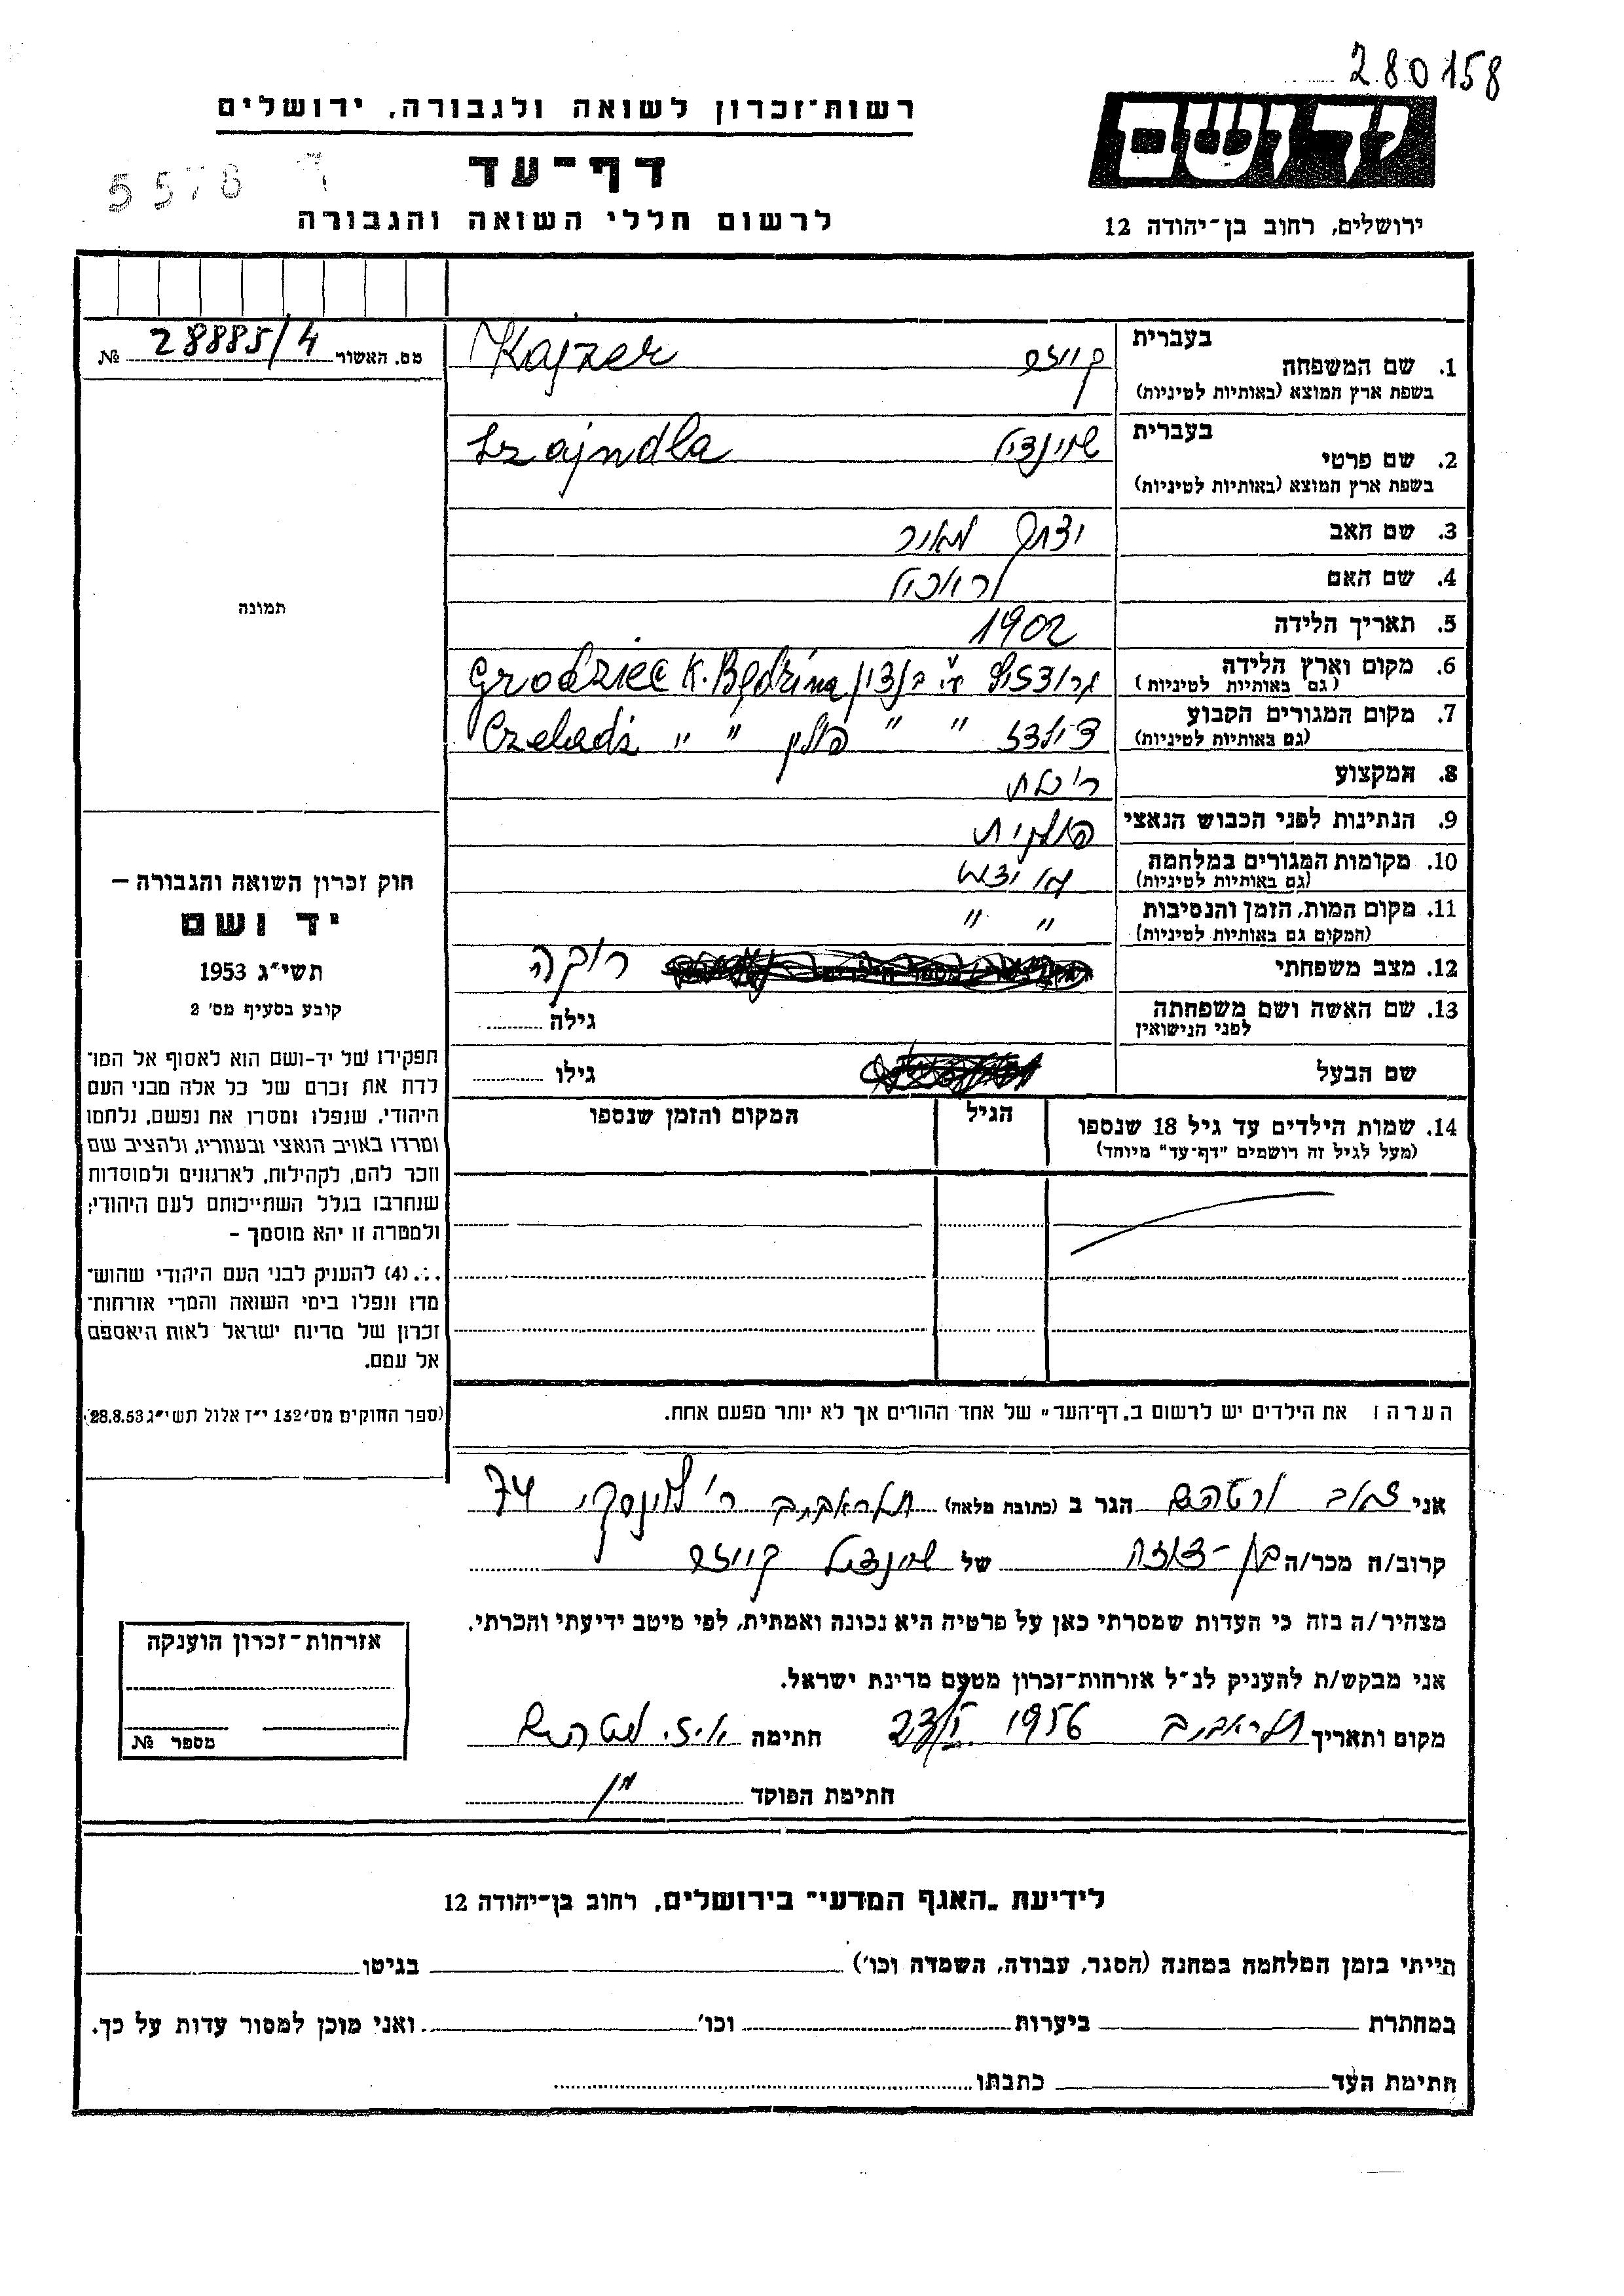 280158
רשות־זכרון לשואה ולגבורה, ירושלים
יד ושם
דף־עד
5578
לרשום חללי השואה והגבורה
ירושלים, רחוב בן־יהודה 12
בעברית
1. שם המשפחה קייזר Kajzer
בשפת ארץ המוצא (באותיות לטיניות)
מס. האשור 28885/4 №
בעברית
2. שם פרטי שיינדל Szajndla
בשפת ארץ המוצא (באותיות לטיניות)
3. שם האב יצחק מאיר
4. שם האם
5. תאריך הלידה 1902
6. מקום וארץ הלידה Grodziec K. Będzina
(גם באותיות לטיניות)
7. מקום המגורים הקבוע " " פולין " " Czeladź
(גם באותיות לטיניות)
8. המקצוע
9. הנתינות לפני הכבוש הנאצי פולנית
10. מקומות המגורים במלחמה
(גם באותיות לטיניות)
11. מקום המות, הזמן והנסיבות " "
(המקום גם באותיות לטיניות)
12. מצב משפחתי רוקה
13. שם האשה ושם משפחתה
לפני הנישואין
גילה
שם הבעל
גילו
14. שמות הילדים עד גיל 18 שנספו
(מעל לגיל זה רושמים "דף־עד" מיוחד)
הגיל
המקום והזמן שנספו
תמונה
חוק זכרון השואה והגבורה –
יד ושם
תשי"ג 1953
קובע בסעיף מס' 2
תפקידו של יד-ושם הוא לאסוף אל המו־
לדת את זכרם של כל אלה מבני העם
היהודי, שנפלו ומסרו את נפשם, נלחמו
ומרדו באויב הנאצי ובעוזריו, ולהציב שם
וזכר להם, לקהילות, לארגונים ולמוסדות
שנחרבו בגלל השתייכותם לעם היהודי;
ולמטרה זו יהא מוסמך –
.∴. (4) להעניק לבני העם היהודי שהוש־
מדו ונפלו בימי השואה והמרי אזרחות־
זכרון של מדינת ישראל לאות היאספם
אל עמם.
(ספר החוקים מס' 132 י"ז אלול תשי"ג 28.8.53)
הערה: את הילדים יש לרשום ב„דף־העד" של אחד ההורים אך לא יותר מפעם אחת.
אני הגר ב (כתובת מלאה) תל אביב רח' 74
קרוב/ה מכר/ה של שיינדל קייזר
מצהיר/ה בזה כי העדות שמסרתי כאן על פרטיה היא נכונה ואמתית, לפי מיטב ידיעתי והכרתי.
אני מבקש/ת להעניק לנ"ל אזרחות־זכרון מטעם מדינת ישראל.
מקום ותאריך תל אביב 1956 חתימה
חתימת הפוקד
אזרחות־זכרון הוענקה
מספר №
לידיעת „האגף המדעי" בירושלים, רחוב בן־יהודה 12
הייתי בזמן המלחמה במחנה (הסגר, עבודה, השמדה וכו') בגיטו
במחתרת ביערות וכו' ואני מוכן למסור עדות על כך.
חתימת העד כתבתו